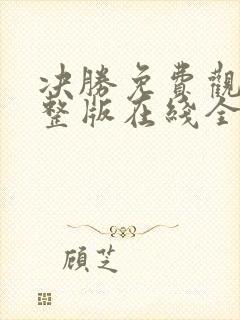 决勝免費觀
整版在綫全
顧芝